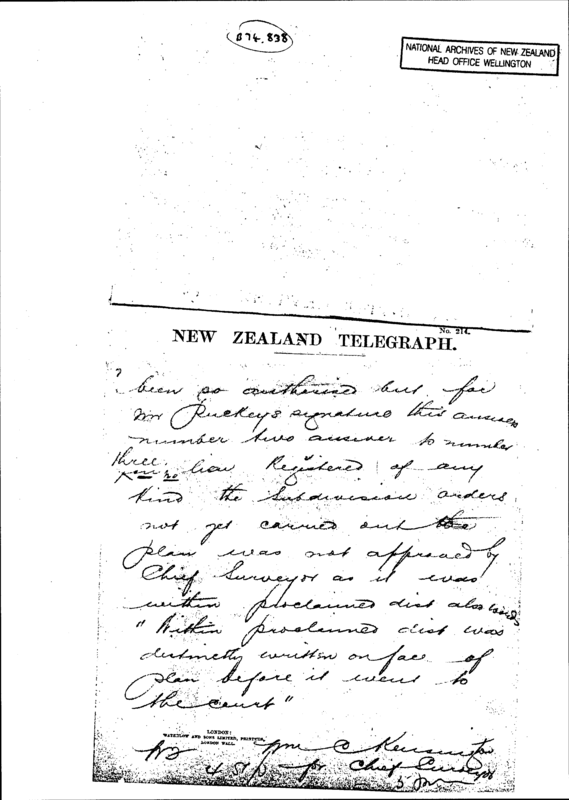 874.838
NATIONAL ARCHIVES OF NEW ZEALAND
HEAD OFFICE WELLINGTON
No. 214.
NEW ZEALAND TELEGRAPH.
been so authorised but for
Mr Puckeys signature this answers
number two answer to number
three no lien Registered of any
Kind the Subdivision orders
not yet carried out the
plan was not approved by
Chief Surveyor as it was
within proclaimed dist also words
"Within proclaimed dist was
distinctly written on face of
plan before it went to
the court"
LONDON:
WATERLOW AND SONS LIMITED, PRINTERS,
LONDON WALL
Wm C Kensington
for Chief Surveyor